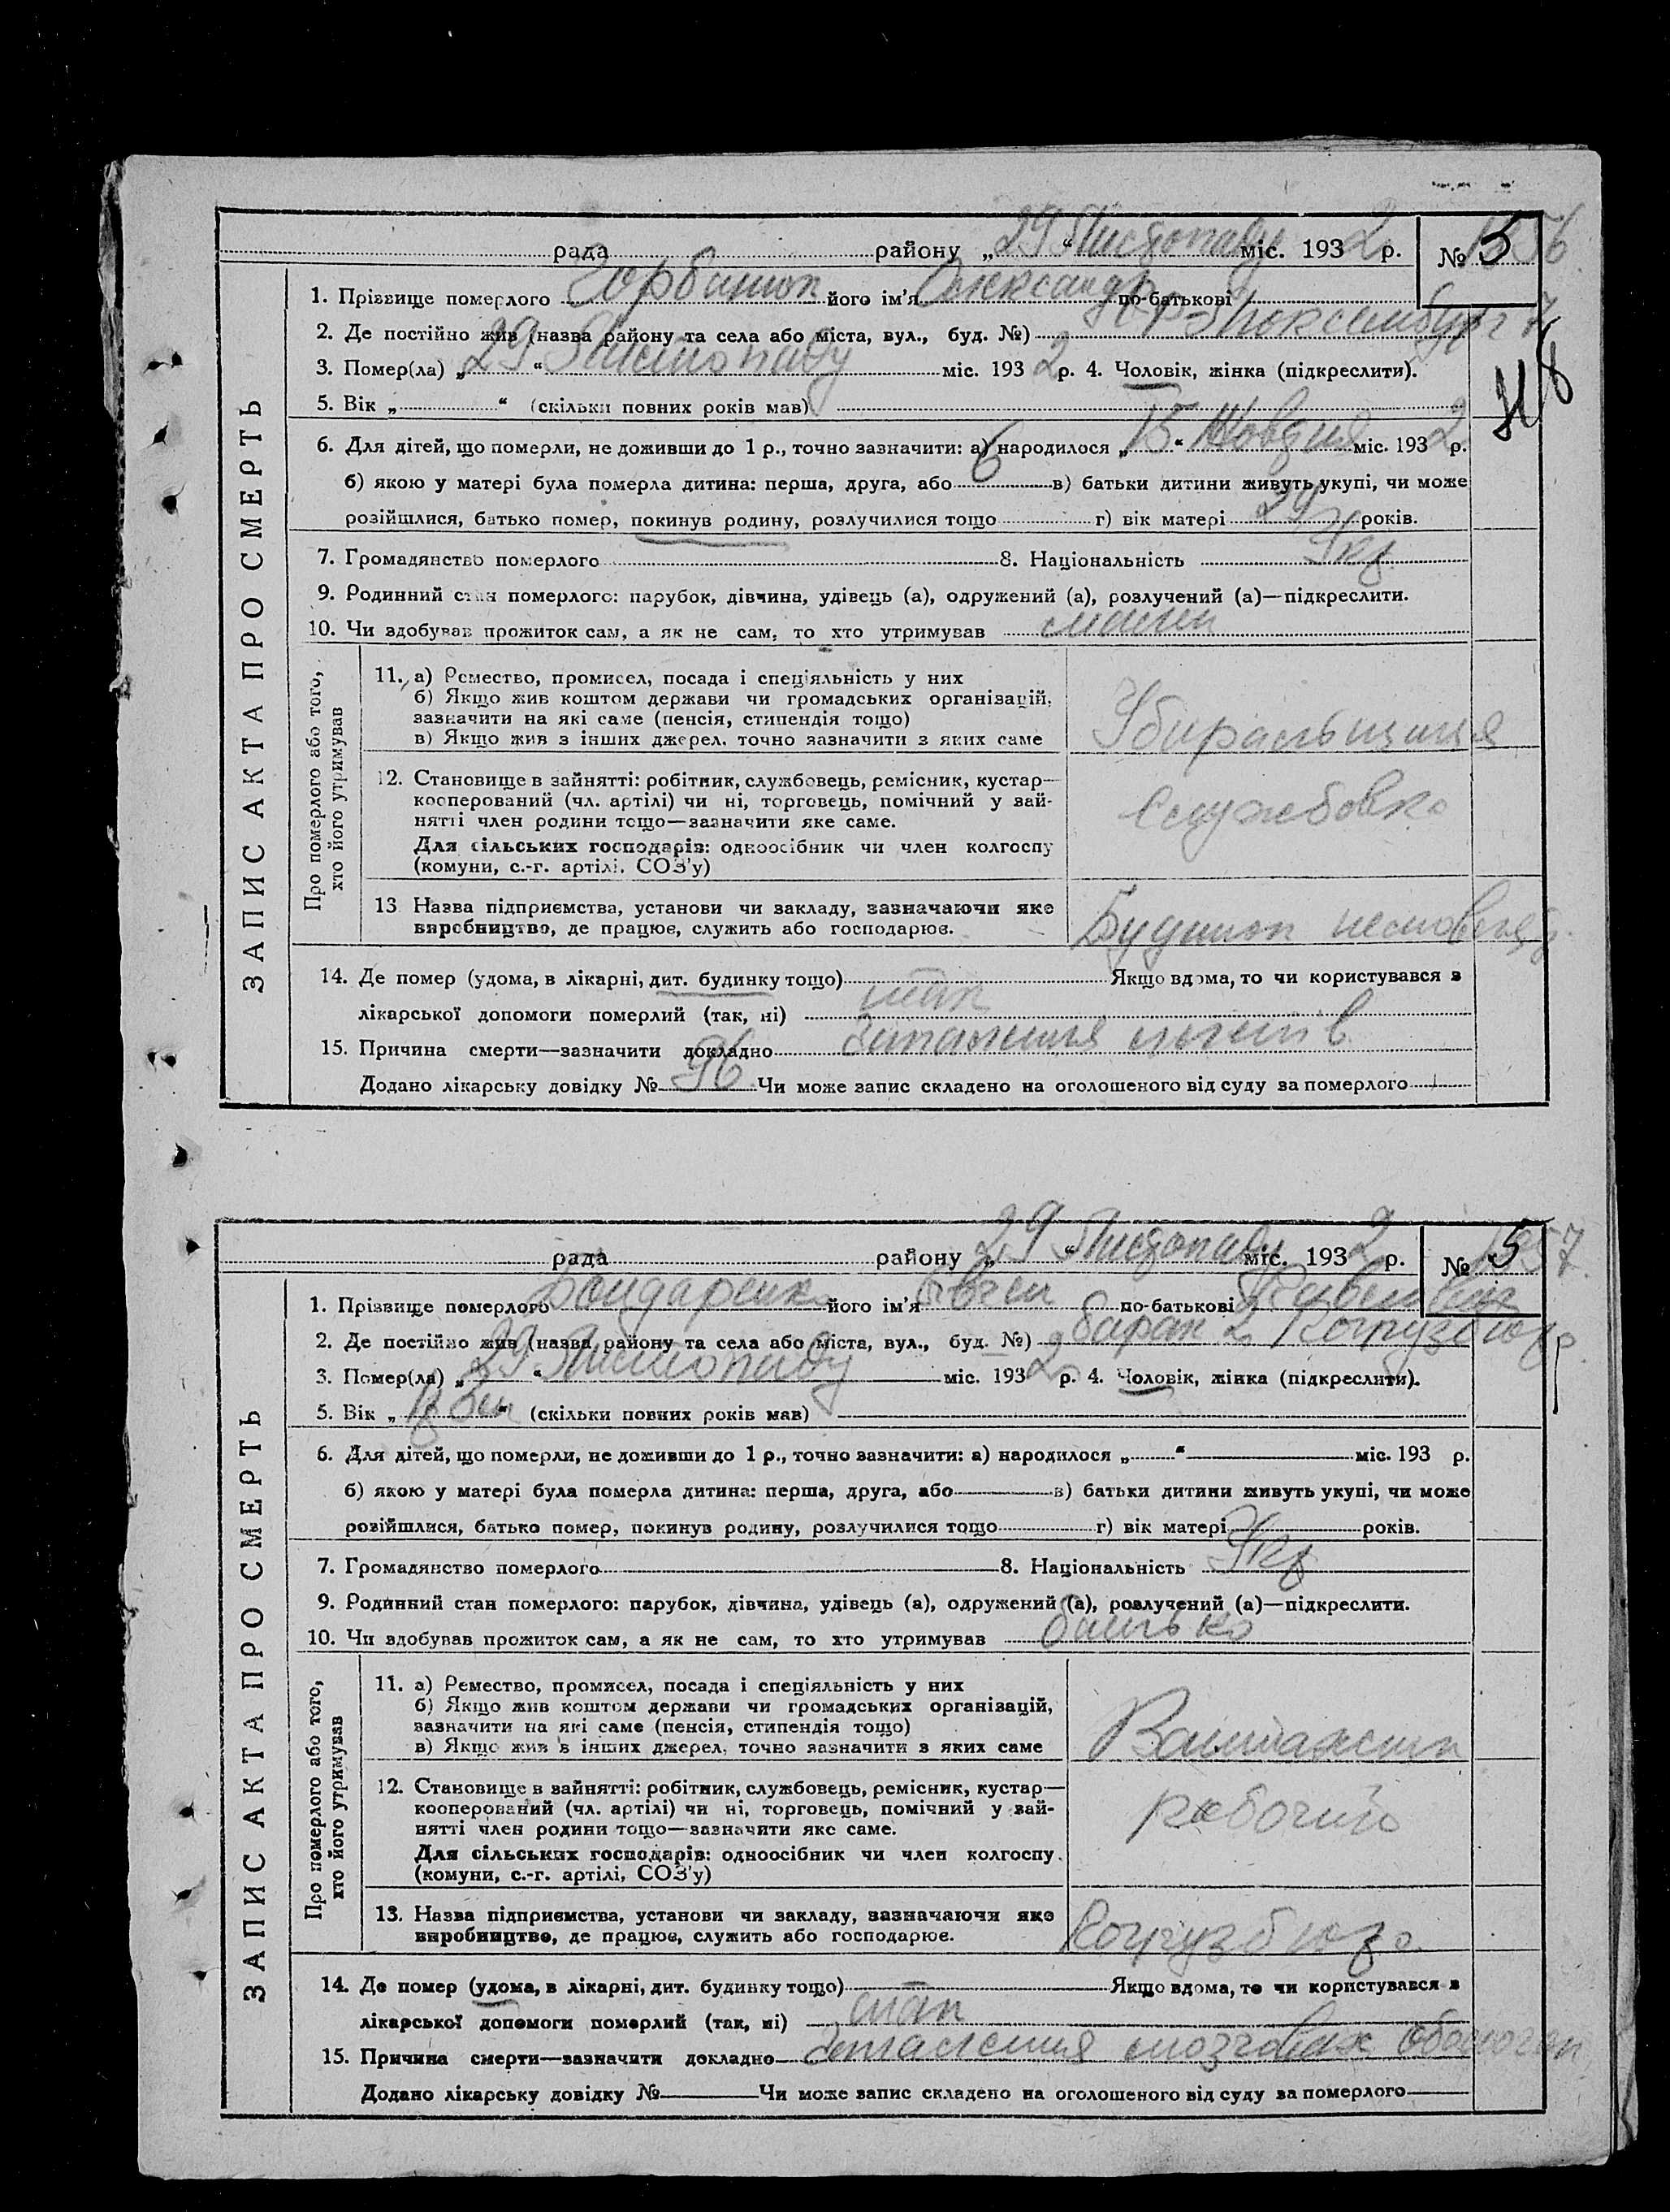 рада района „29“ Листопаду міс. 1932 р. № 5
1. Прізвище померлого його ім'я Олександр по-батькові
2. Де постійно жив (назва району та села або міста, вул., буд. №) Р. Люксембург 7
3. Помер(ла) „29“ Листопаду міс. 1932 р. 4. Чоловік, жінка (підкреслити).
5. Вік „ “ (скільки повних років мав)
6. Для дітей, що померли, не доживши до 1 р., точно зазначити: а) народилося „15“ Жовтня міс. 1932 р.
б) якою у матері була померла дитина: перша, друга, або 6 в) батьки дитини живуть укупі, чи може
розійшлися, батько помер, покинув родину, розлучилися тощо г) вік матері 29 років.
7. Громадянство померлого 8. Національність Укр
9. Родинний стан померлого: парубок, дівчина, удівець (а), одружений (а), розлучений (а)—підкреслити.
10. Чи здобував прожиток сам, а як не сам, то хто утримував мати
ЗАПИС АКТА ПРО СМЕРТЬ
Про померлого або того,
хто його утримував
11. а) Ремество, промисел, посада і спеціяльність у них
б) Якщо жив коштом держави чи громадських організацій,
зазначити на які саме (пенсія, стипендія тощо)
в) Якщо жив з інших джерел, точно зазначити з яких саме
Убиральщиця
12. Становище в зайнятті: робітник, службовець, ремісник, кустар—
кооперований (чл. артілі) чи ні, торговець, помічний у зай-
нятті член родини тощо—зазначити яке саме.
Для сільських господарів: одноосібник чи член колгоспу
(комуни, с.-г. артілі, СОЗ'у)
Службовка
13 Назва підприємства, установи чи закладу, зазначаючи яке
виробництво, де працює, служить або господарює.
Будинок немовлят
14. Де помер (удома, в лікарні, дит. будинку тощо) Якщо вдома, то чи користувався з
лікарської допомоги померлий (так, ні) так
15. Причина смерти—зазначити докладно Запалення легенів
Додано лікарську довідку № 96 Чи може запис складено на оголошеного від суду за померлого
рада району „29“ Листопаду міс. 1932 р. № 5
1. Прізвище померлого Бондаренко його ім'я Євген по-батькові
2. Де постійно жив (назва району та села або міста, вул., буд. №) барак 2
3. Помер(ла) „29“ Листопаду міс. 1932 р. 4. Чоловік, жінка (підкреслити).
5. Вік „ “ (скільки повних років мав)
6. Для дітей, що померли, не доживши до 1 р., точно зазначити: а) народилося „ “ міс. 193 р.
б) якою у матері була померла дитина: перша, друга, або в) батьки дитини живуть укупі, чи може
розійшлися, батько помер, покинув родину, розлучилися тощо г) вік матері років.
7. Громадянство померлого 8. Національність Укр
9. Родинний стан померлого: парубок, дівчина, удівець (а), одружений (а), розлучений (а)—підкреслити.
10. Чи здобував прожиток сам, а як не сам, то хто утримував батько
ЗАПИС АКТА ПРО СМЕРТЬ
Про померлого або того,
хто його утримував
11. а) Ремество, промисел, посада і спеціяльність у них
б) Якщо жив коштом держави чи громадських організацій,
зазначити на які саме (пенсія, стипендія тощо)
в) Якщо жив з інших джерел, точно зазначити з яких саме
Вантажник
12. Становище в зайнятті: робітник, службовець, ремісник, кустар—
кооперований (чл. артілі) чи ні, торговець, помічний у зай-
нятті член родини тощо—зазначити яке саме.
Для сільських господарів: одноосібник чи член колгоспу.
(комуни, с.-г. артілі, СОЗ'у)
робочий
13. Назва підприємства, установи чи закладу, зазначаючи яке
виробництво, де працює, служить або господарює.
14. Де помер (удома, в лікарні, дит. будинку тощо) Якщо вдома, то чи користувався з
лікарської допомоги померлий (так, ні) так
15. Причина смерти—зазначити докладно Запалення мозгових оболочок
Додано лікарську довідку № Чи може запис складено на оголошеного від суду за померлого